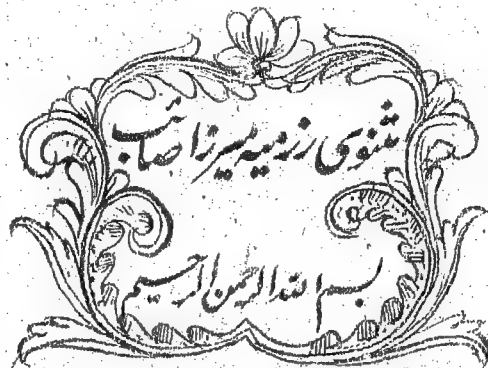 مثنوی رزمیه میرزا صائب
بسم الله الرحمن الرحیم